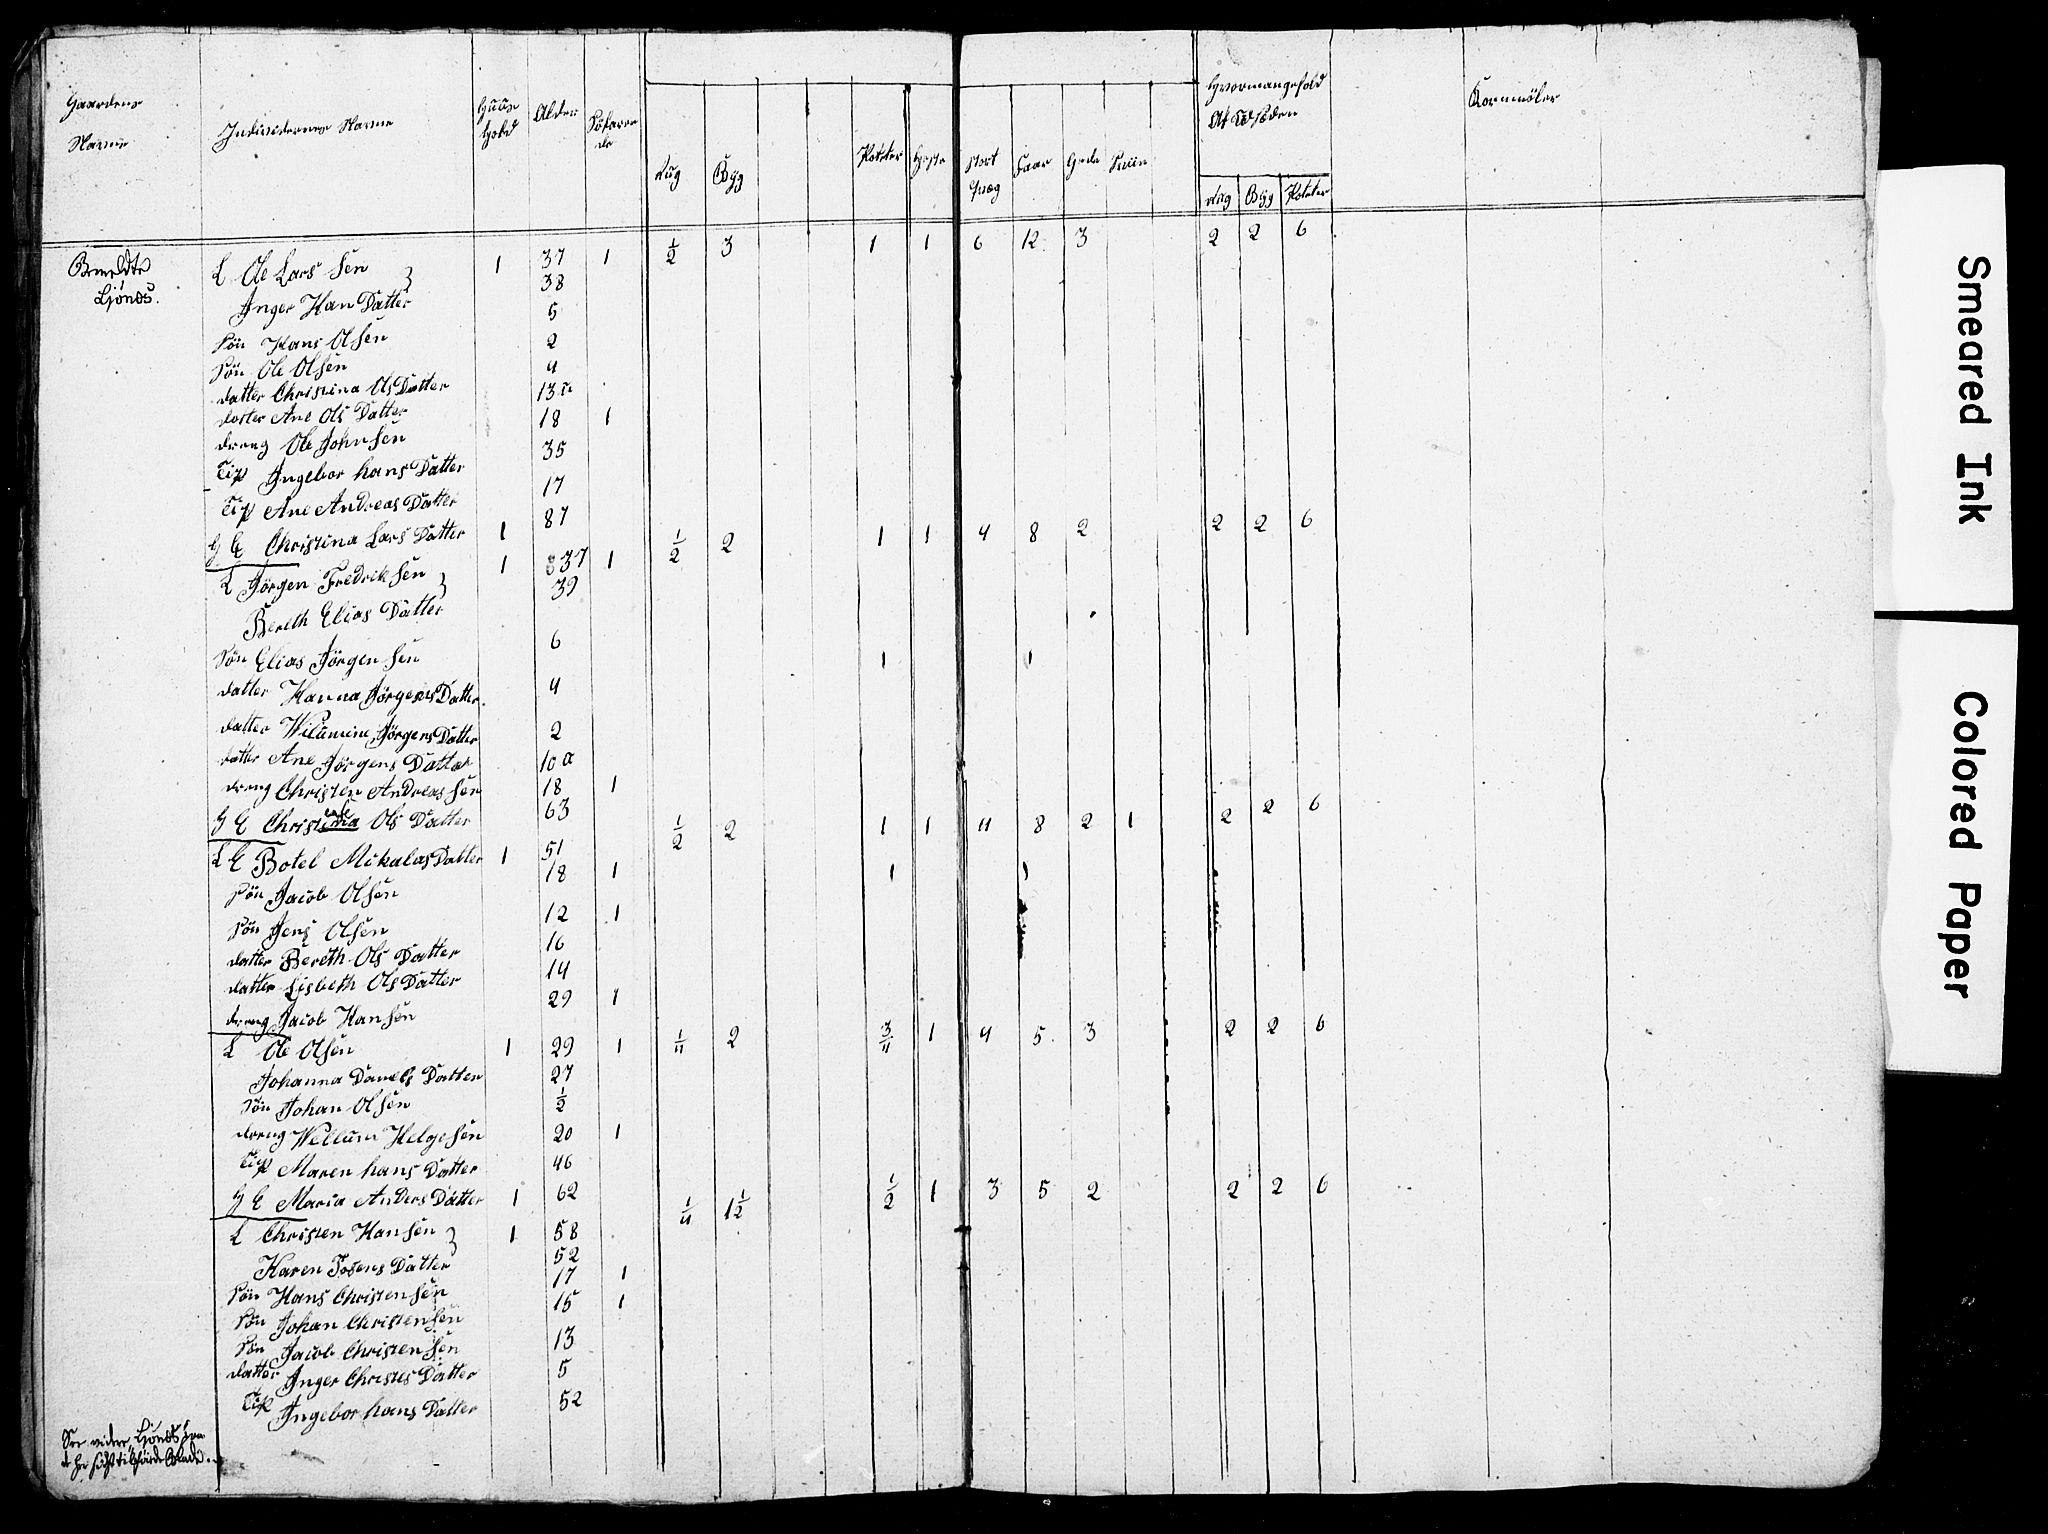 Gaardens Individernes Navne Huus Alder Søfaren Hvormangefold Kornmøler
Navne hold de Af Udsæden
Rug Byg Poteter Heste stort Faar Gede Sviin
qvæg Rug Byg Poteter
Bemeldte L Ole Lars Sen 1 37 1 1/2 3 1 1 6 12 3 2 2 6
Ljönds. 38
Inger Han Datter
Søn Hans Olsen 5
Søn Ole Olsen 2
datter Christina Ols Datter 4
datter Ane Ols Datter 13
dreng Ole John Sen 18 1
Tip Ingebor hans Datter 35
Tip Ane Andreas Datter 17
G E Christina Lars Datter 1 87
L Jørgen Fredrik Sen 1 37 1 1/2 2 1 1 4 8 2 2 2 6
Bereth Elias Datter 39
Søn Elias Jörgen Sen 6 1 1
datter Hanna Jörgens Datter. 4
datter Wilumine Jörgens Datter 2
datter Ane Jörgens Datter 10 a
dreng Christen Andreas Sen 18 1
G E Christina Ols Datter 63
L E Botel Mikalas Datter 1 51 1/2 2 1 1 4 8 2 1 2 2 6
Søn Jacob Olsen 18 1 1 1
Søn Jens Olsen 12 1
datter Bereth Ols Datter 16
datter Lisbeth Ols Datter 14
dreng Jacob Hansen 29 1
L Ole Olsen 1 29 1 1/4 2 3/4 1 4 5 3 2 2 6
Johanna Danels Datter 27
Søn Johan Olsen 1/2
dreng Wellum Helge Sen 20 1
Tip Maren hans Datter 46
G E Maria Anders Datter 1 62
L Christen Hansen 1 58 1/4 1 1/2 1/2 1 3 5 2 2 2 6
Karen Tosens Datter 52
Søn Hans Christensen 17 1
Søn Johan Christensen 15 1
Søn Jacob Christensen 13
datter Inger Christes Datter 5
Tip Ingebor hans Datter 52
See videre Ljönds
Smeared Ink
Colored Paper